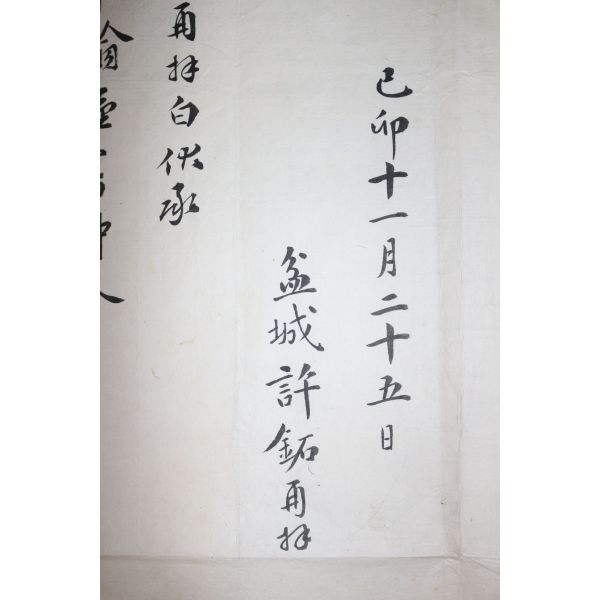 己卯十一月二十五日
盆城許鉐再拜
再拜白伏承